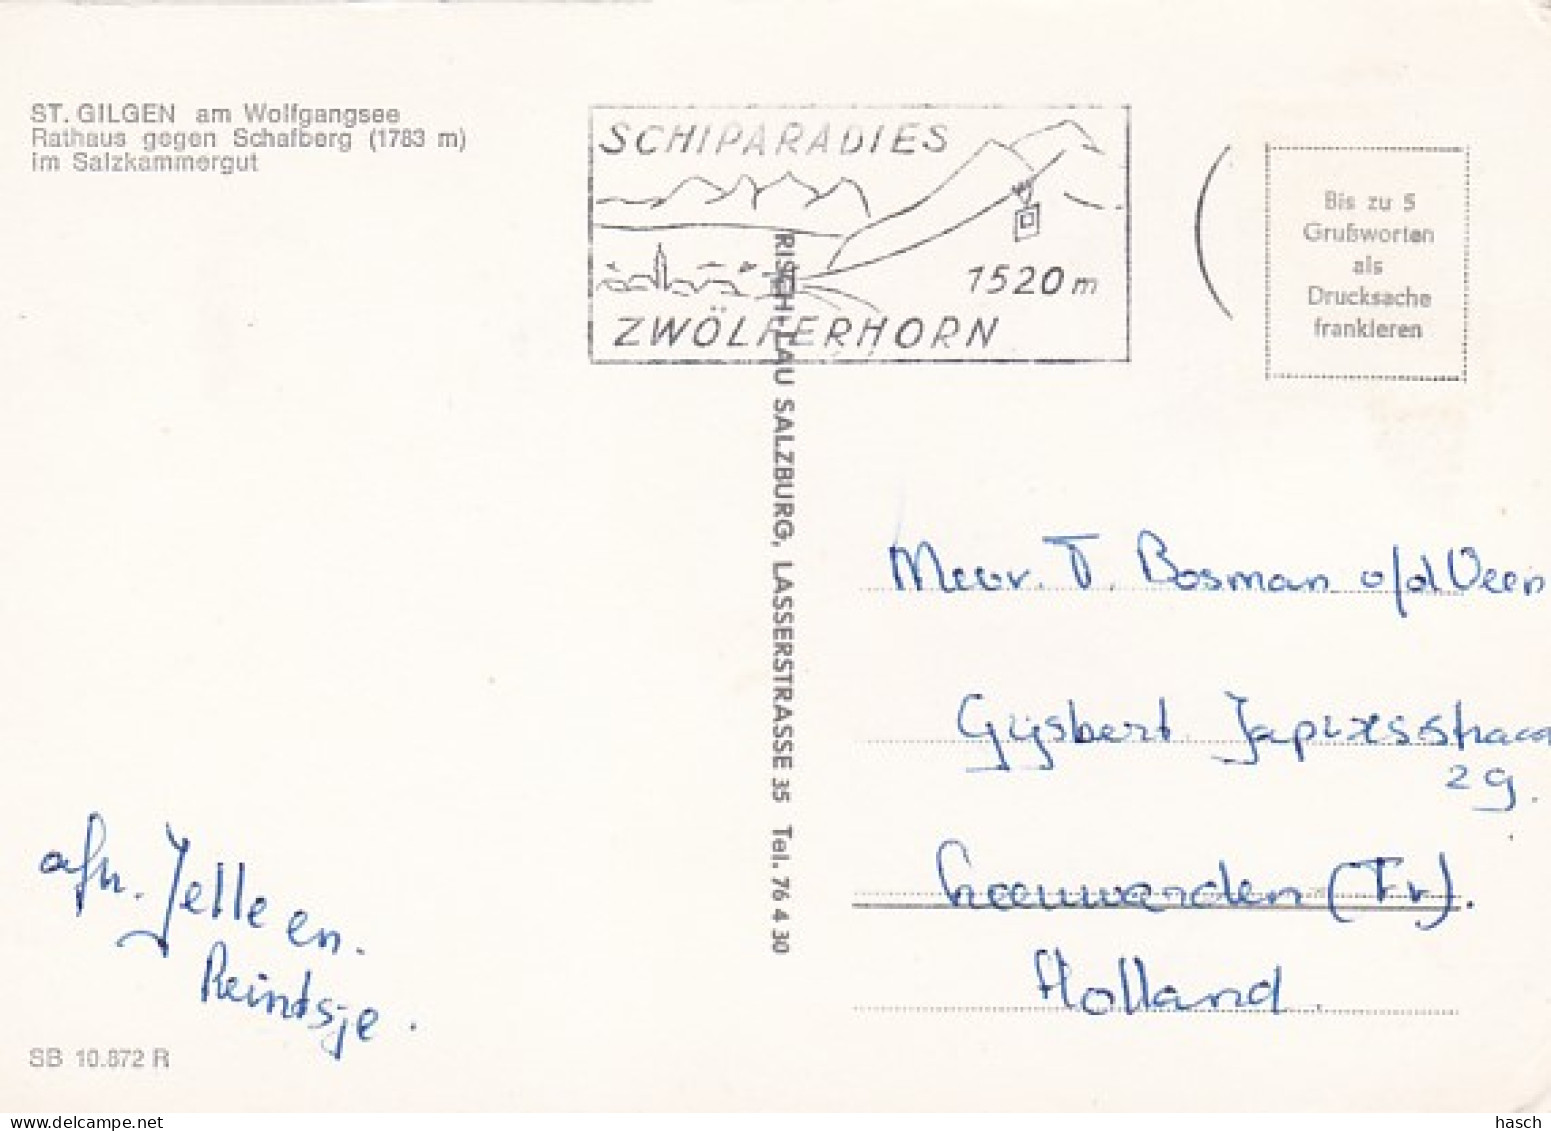 ST. GILGEN am Wolfgangsee
Rathaus gegen Schafberg (1783 m)
im Salzkammergut
SCHIPARADIES
1520 m
ZWÖLFERHORN
Bis zu 5
Grußworten
als
Drucksache
frankieren
RISCH-LAU SALZBURG, LASSERSTRASSE 35 Tel. 76 4 30
Mevr. T. Bosman o/d Veen
Gijsbert Japixsstraat
29.
Leeuwarden (Fr).
Holland.
afz. Jelle en.
Reintsje.
SB 10.872 R
hasch